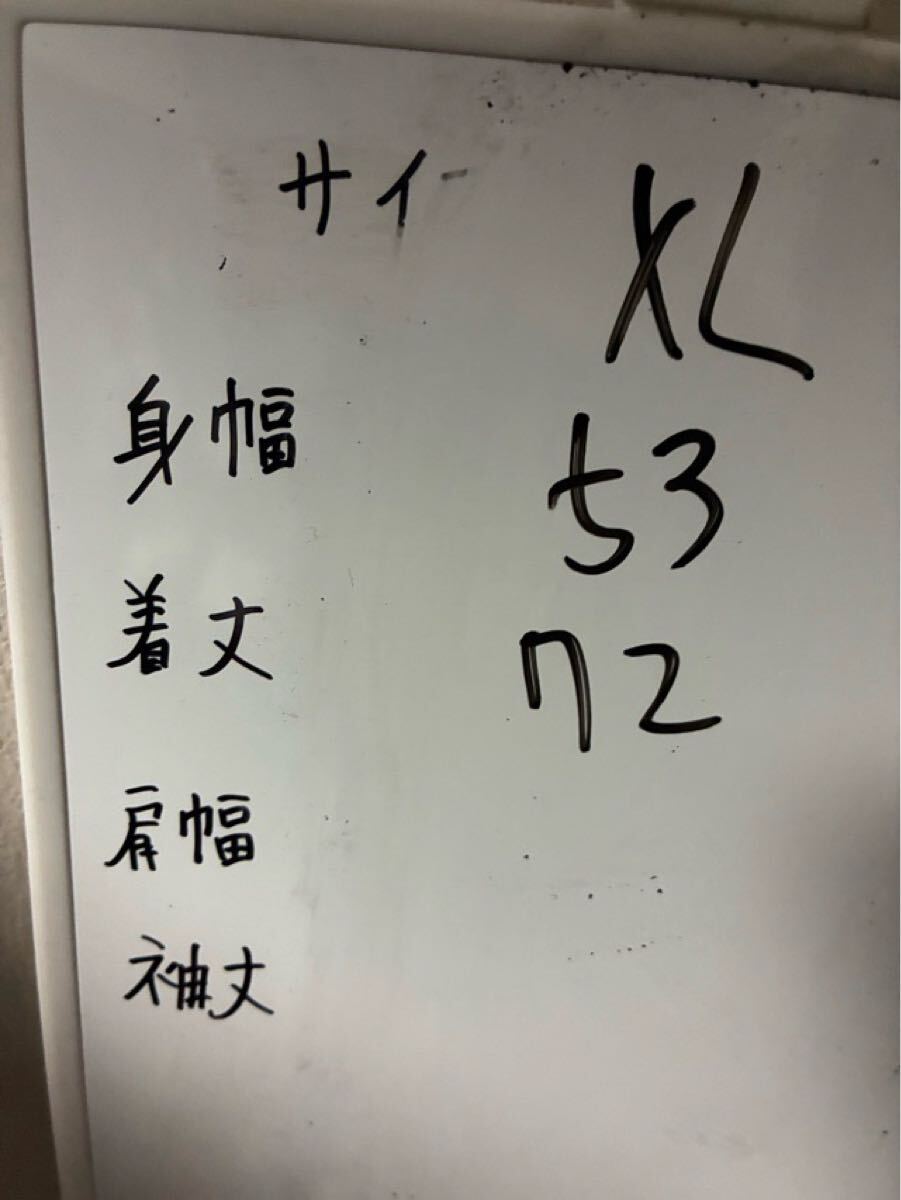 サイ XL
身幅 53
着丈 72
肩幅
袖丈